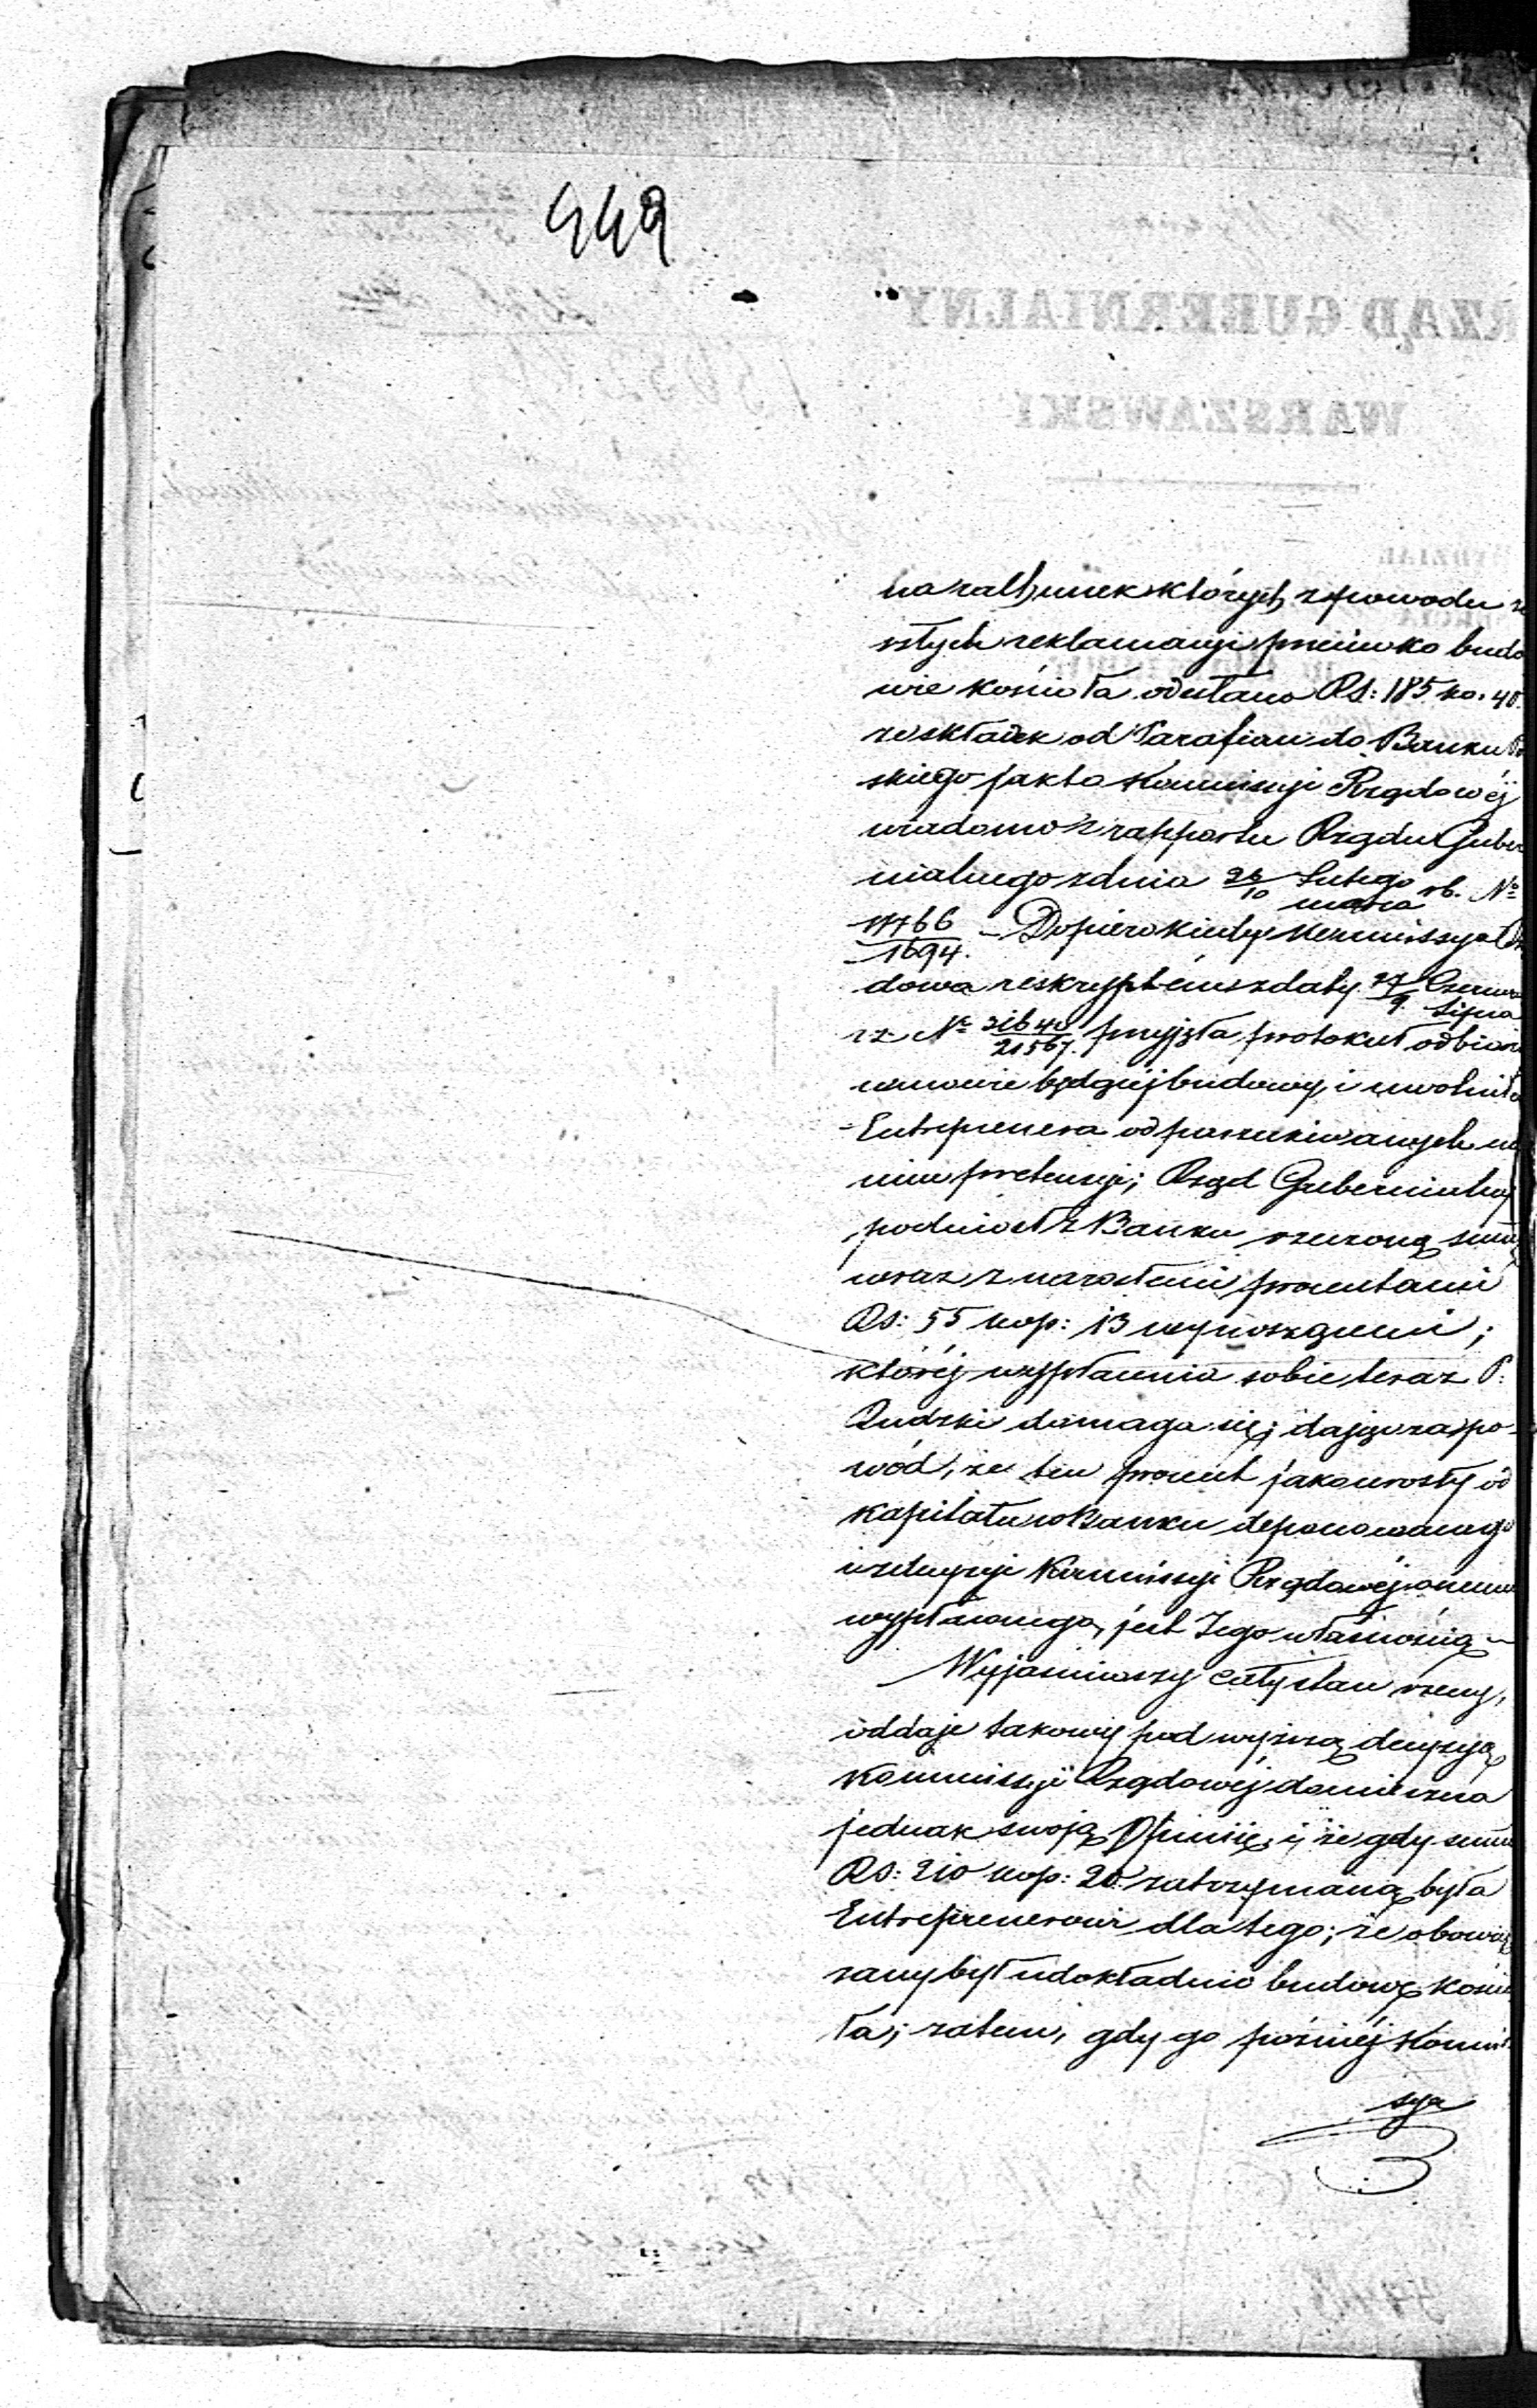 449
na rachunek których z powodu za
szłych reklamacyi przeciwko budo
wie kościoła odesłano RS: 185 ko. 40.
ze składek od Parafian do Banku Po
skiego jak to Kommissyi Rządowéj
wiadomo z rapportu Rządu Guber
nialnego z dnia 26/10 Lutego/marca rb. №
17766/1694. – Dopiero kiedy Kommissya Rzą
dowa reskryptem z daty 27/9. Czerwca/Lipca
rz. № 31640/21567. przyjęła protokuł odbior
w mowie będącéj budowy, i uwolniła
Entreprenera od poszukiwanych na
nim pretensyi; Rząd Gubernialny
podniósł z Banku rzeczoną summ
wraz z narosłemi procentami
RS: 55 kop: 13 wynoszącemi;
któréj wypłacenia sobie teraz P.
Rudzki domaga się, dając za po-
wód, że ten procent jako urosły od
kapitału w Banku deponowanego
i z decyzyi Kommissyi Rządowéj onemu
wypłaconego, jest Jego własnością –
Wyjaśniwszy cały stan rzeczy,
oddaje takowy pod wyższą decyzyą
Kommissyi Rządowéj domieszcza
jednak swoją Opinię, iż że gdy summ
RS: 210 kop: 20. zatrzymaną była
Entreprenerowi dla tego; że obowią
zany był udokładnić budowę kości
ła; zatem, gdy go późniéj Kommis
sya